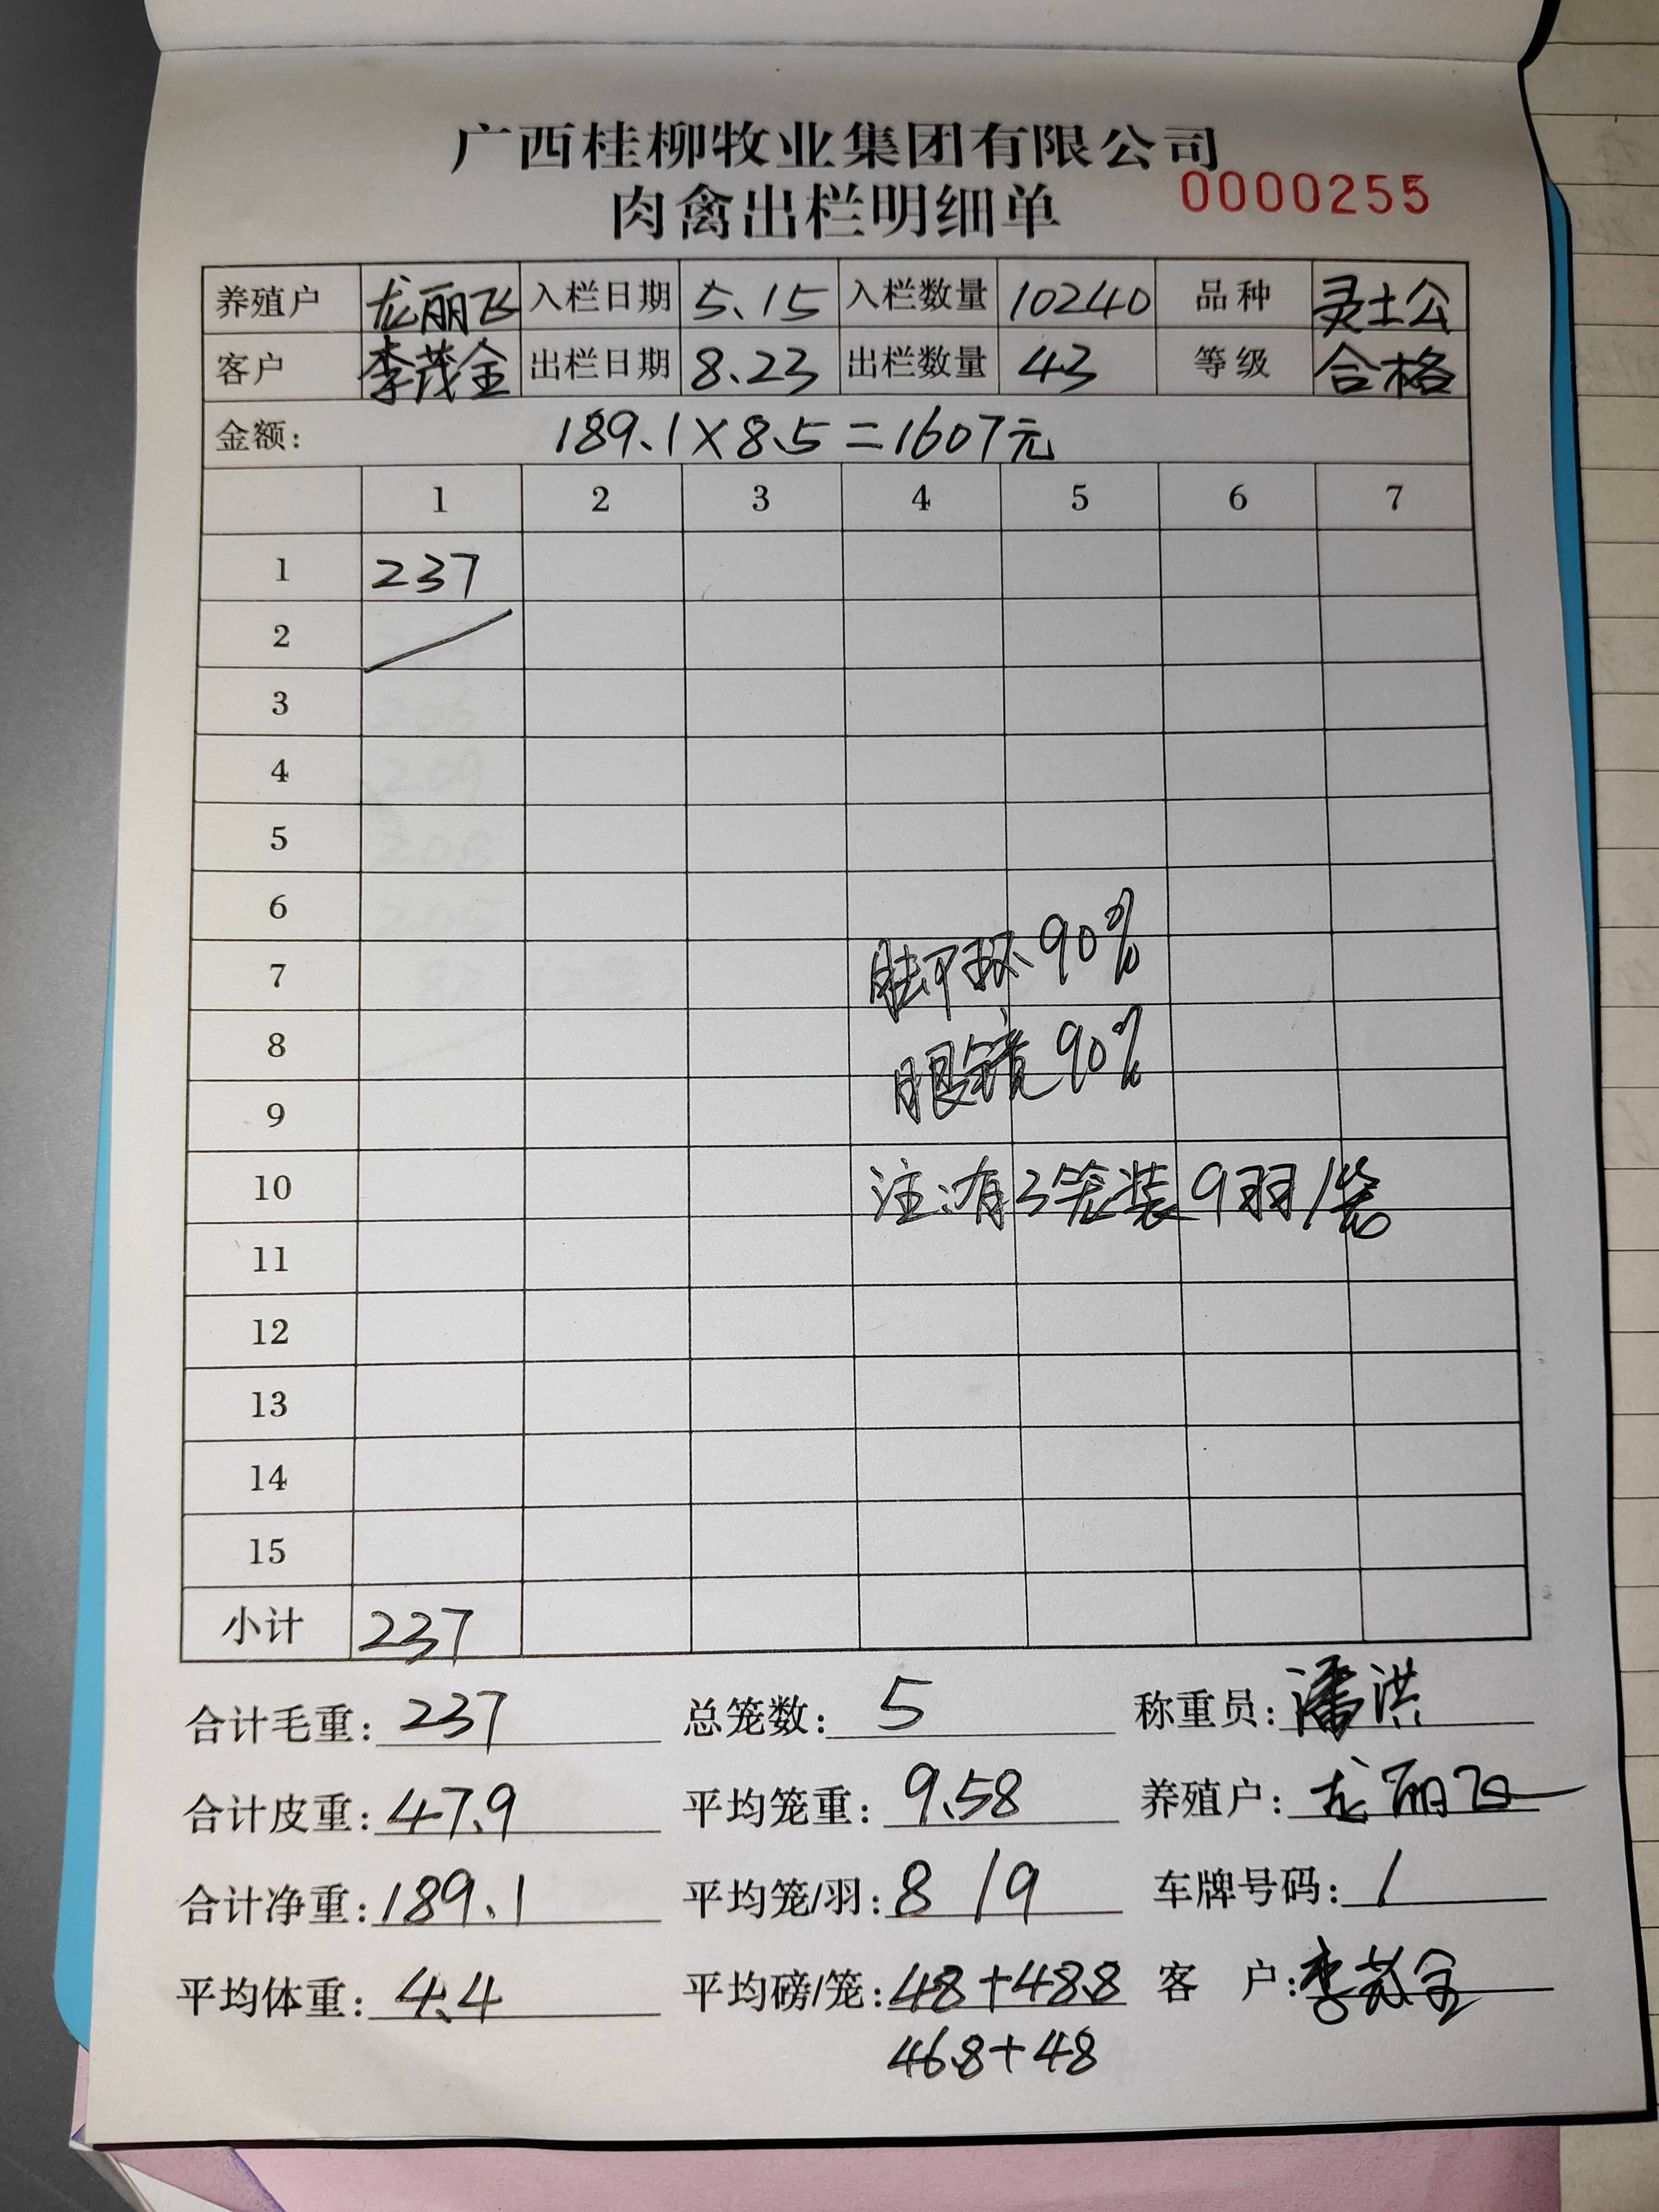 广西桂柳牧业集团有限公司
肉禽出栏明细单 0000255
养殖户 龙丽飞 入栏日期 5.15 入栏数量 10240 品种 灵土公
客户 李茂全 出栏日期 8.23 出栏数量 43 等级 合格
金额: 189.1×8.5=1607元
1 2 3 4 5 6 7
1 237
2
3
4
5
6
脚环90%
7
8
眼镜90%
9
10 注:有3笼装9羽/笼
11
12
13
14
15
小计 237
合计毛重: 237 总笼数: 5 称重员: 潘洪
合计皮重: 47.9 平均笼重: 9.58 养殖户: 龙丽飞
合计净重: 189.1 平均笼/羽: 8 / 9 车牌号码: /
平均体重: 4.4 平均磅/笼: 48+48.8 客 户: 李茂全
46.8+48